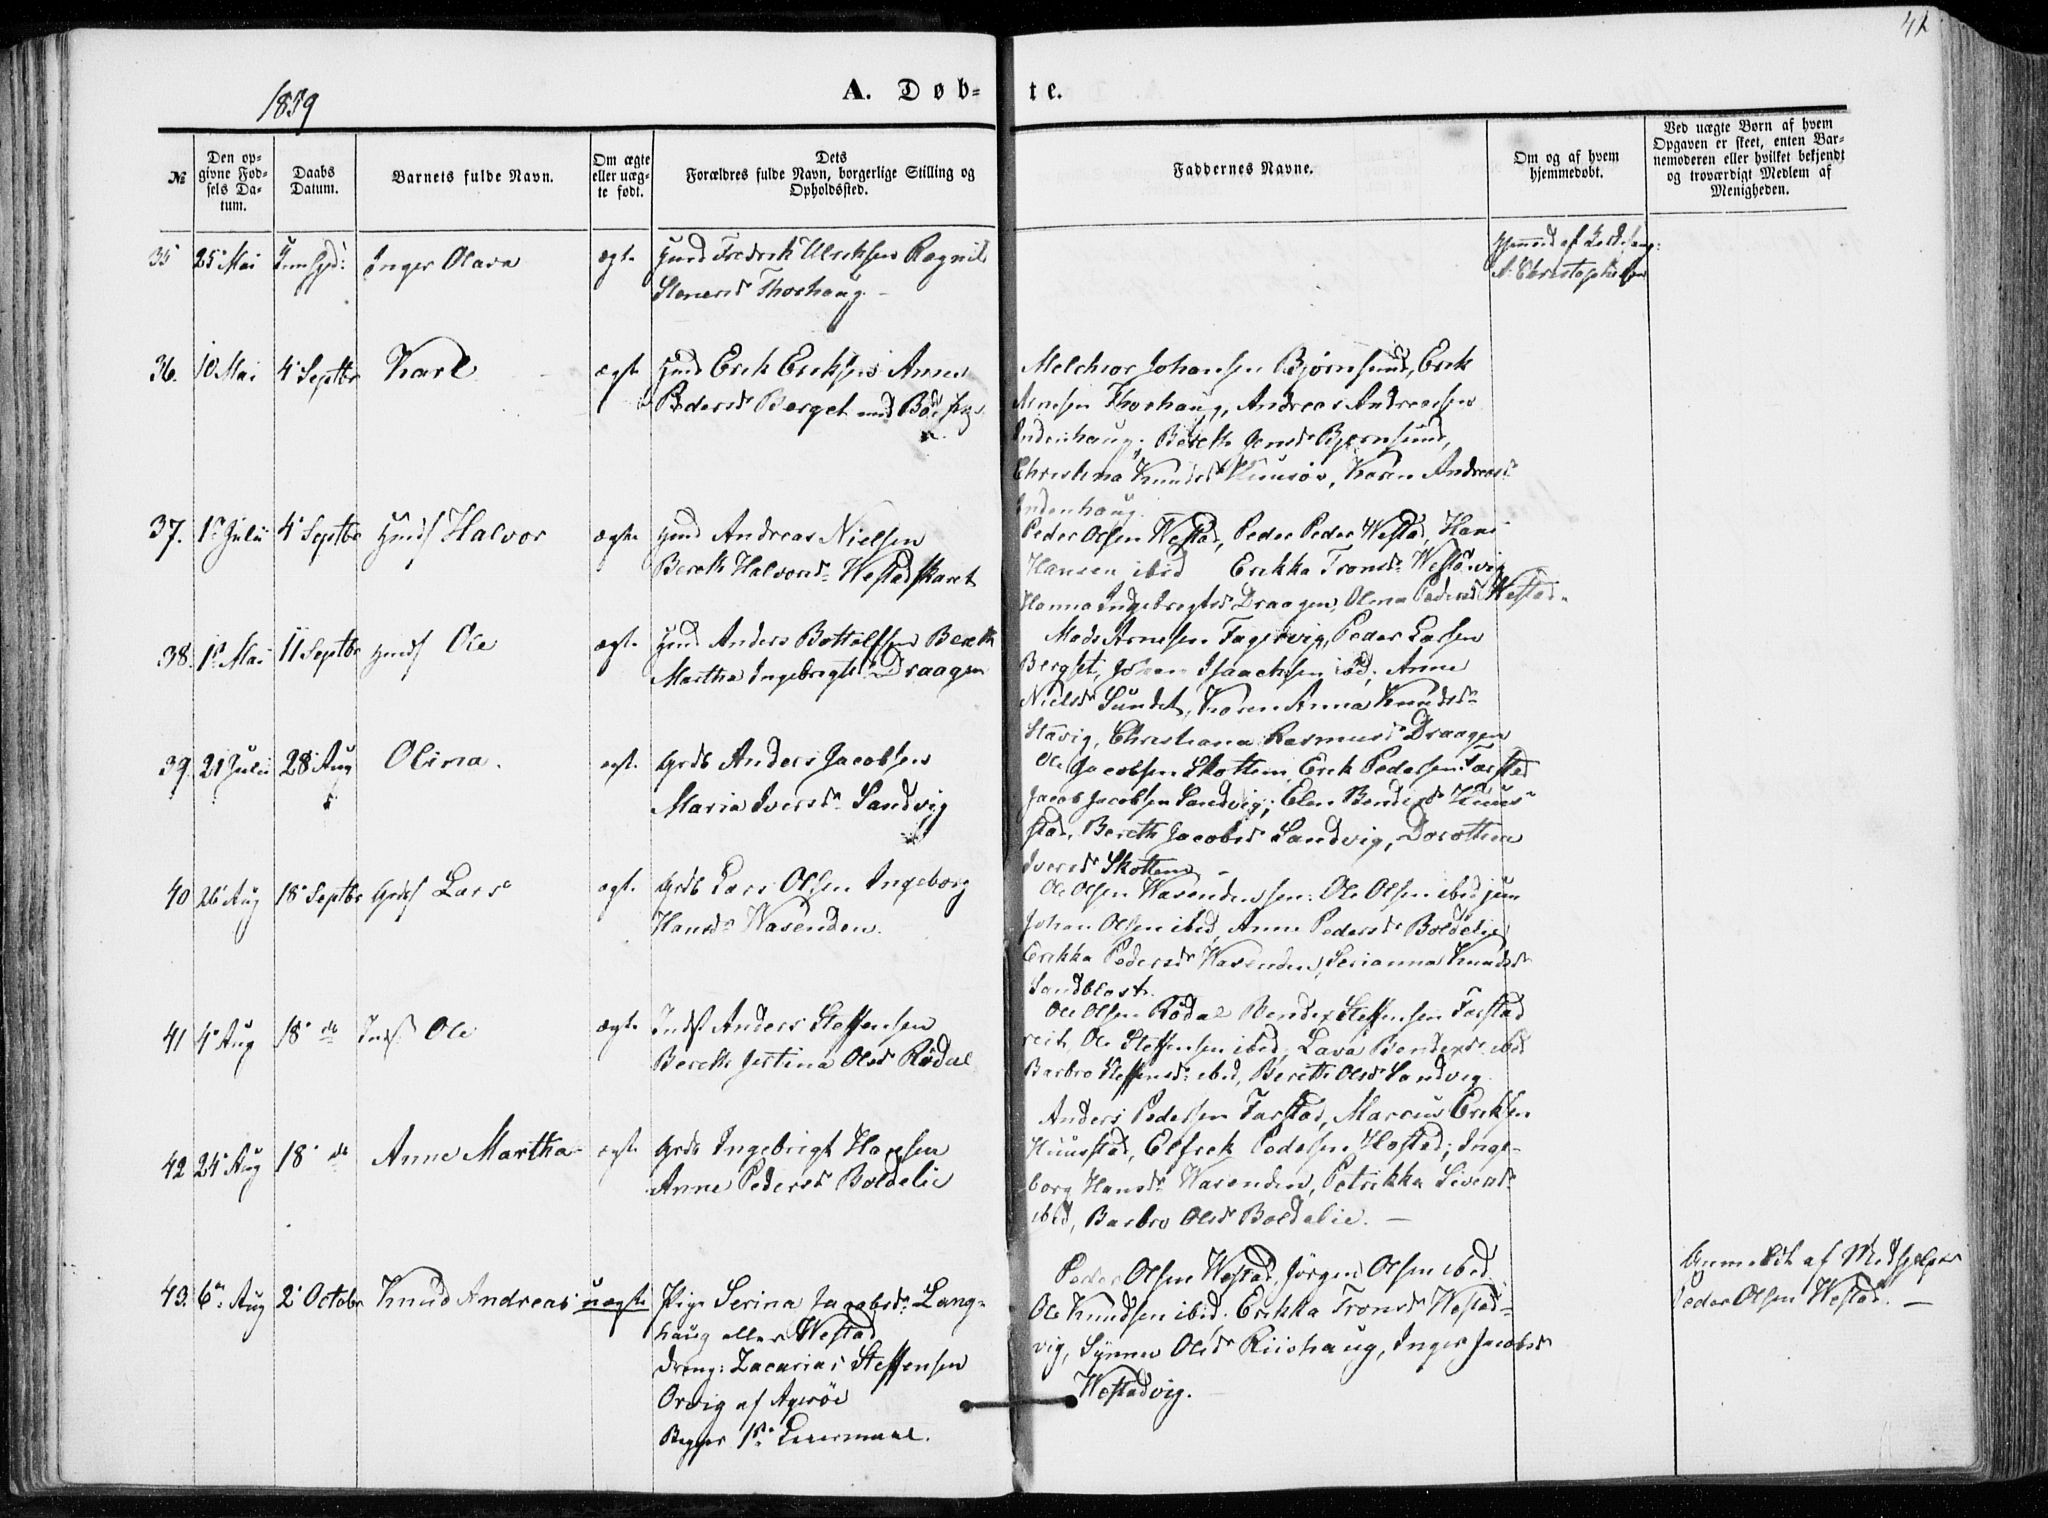 42
1859
A. Døb-
te.
№
Den op-
givne Fød-
sels Da-
tum.
Daabs
Datum.
Barnets fulde Navn.
Om ægte
eller uæg-
te født.
Dets
Forældres fulde Navn, borgerlige Stilling og
Opholdssted.
Faddernes Navne.
Om og af hvem
hjemmedøbt.
Ved uægte Børn af hvem
Opgaven er skeet, enten Bar-
nemoderen eller hvilket bekjendt
og troværdigt Medlem af
Menigheden.
35 25 Mai Inger Olava ægte Huusm Fredrik Ulriksen Ragnil
Thorhaug
A. Christophersen
36. 10 Mai 4 Septbr Karl ægte Huusm Erik Eriksen Anne
Pedersd Berget
Melchior Johansen Bjørnsund, Erik
Arnesen Thorhaug, Andreas Andreassen
Indenhaug; Bereth Jensd Bjørnsund,
Christina Knudsd, Karen Andreasd
Indenhaug.
37. 1 Julii 4 Septbr Halvor ægte Andreas Nielsen
Bereth Halvorsd Westadskaret
Peder Olsen Westad, Peder Peder Westad, Hans
Hansen ibid Erikka Tronsd Westadvig
Hanna Ingebrigtsd Draagen, Olina Pedersd Westad
38. 1 Mai 11 Septbr Ole ægte Anders Bottolfsen Bereth
Martha Ingebrigtsd Draagen
Mads Arnesen Fagervig, Peder Larsen
Bergset, Johan Isaachsen ibd; Anne
Nielsd Sundet, Karen Anna Knudsd
Stavig, Christiana Rasmusd Draagen
39. 21 Julii 28 Aug Olina. ægte Grdb Anders Jacobsen
Maria Iversd Sandvig
Ole Jacobsen Skottem, Erik Pedersen Farstad
Jacob Jacobsen Sandvig; Elen Bendixsd Huus-
stad, Bereth Jacobsd Sandvig, Dorothea
Iversd Skottem
40 26 Aug 18 Septbr Lars ægte Grdb Lars Olsen Ingeborg
Hansd Wasenden.
Ole Olsen Wasenden sen: Ole Olsen ibid jun
Johan Olsen ibid, Anne Pedersd Boldelie
Erikka Pedersd Wasenden, Serianna Knudsd
Sandblaast.
41 4 Aug 18 do Ole ægte Inds Anders Steffensen
Bereth Jertina Olsd Rødal
Ole Olsen Rødal Bendix Steffensen Farstad
Ole Steffensen ibid, Lava Bendixsd ibid
Barbro Steffensd: ibid, Bereth Olsd Sandvig
42 24 Aug 18 do Anne Martha ægte Grdb Ingebrigt Hansen
Anne Pedersd Boldelie
Anders Pedersen Farstad, Marcus Eriksen
Huusstad, Pedersen Hostad; Inge-
borg Hansd Wasenden, Petrikka Sivertsd
ibid, Barbro Olsd Boldelie. —
43. 6 Aug 2 Octobr Knud Andreas uægte Pige Serina Jacobsd Lang-
haug eller Westad
Dreng: Zacarias Steffensen
Orvig af Agerøe
Begges 1ste Leiermaal.
Peder Olsen Westad, Jørgen Olsen ibid,
Ole Knudsen ibid. Erikka Tronsd Westad-
vig, Synnev Olsd Riishaug, Inger Jacobsd
Westadvig.
Anmeldt af Medhjelper
Peder Olsen Westad. —